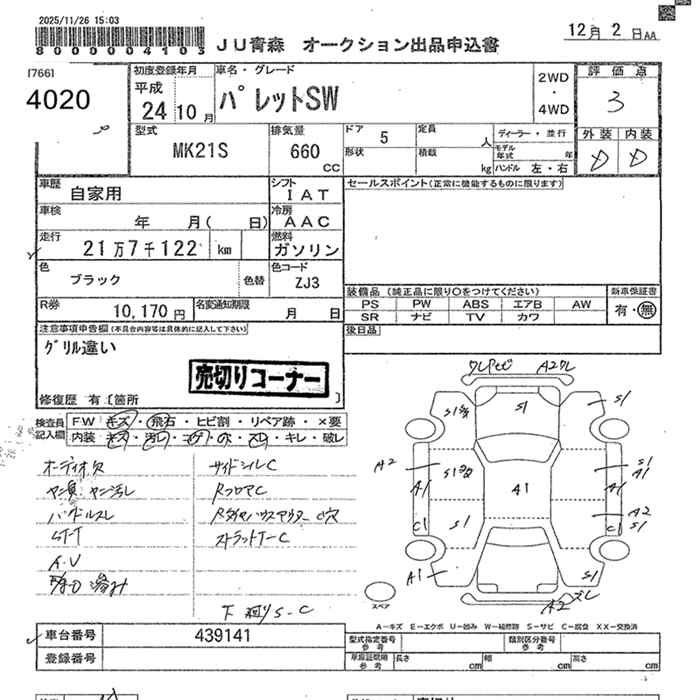 2025/11/26 15:03
8000004103
JU青森 オークション出品申込書
12月 2日AA
[766]
4020
初度登録年月
平成
24 10月
車名・グレード
パレットSW
2WD
・
4WD
評価点
3
型式
MK21S
排気量
660
CC
ドア 5
形状
定員 人
積載 kg
ディーラー・並行
モデル年式 年
ハンドル 左・右
外装 内装
D D
車歴
自家用
シフト
IAT
セールスポイント(正常に機能するものに限ります)
車検
年 月( 日)
冷房
AAC
走行
21万7千122 km
燃料
ガソリン
色
ブラック
色替
色コード
ZJ3
装備品 (純正品に限り○をつけてください)
PS PW ABS エアB AW
SR ナビ TV カワ
新車保証書
有・無
R券
10,170円
名変通知期限
月 日
後日品
注意事項申告欄(不具合内容等は具体的に記入して下さい)
グリル違い
売切りコーナー
修復歴 有〔箇所 〕
検査員記入欄
FW キズ・飛石・ヒビ割・リペア跡・×要
内装 キズ・汚レ・コゲ・穴・スレ・キレ・破レ
オーディオ欠
ヤニ臭 ヤニ汚レ
ハンドルスレ
サイドシルC
RフロアC
ストラットC
下廻りS-C
A2
S1
S1
A1
S1
A1
A1
A1
C1
S1
A2
C1
S1
A1
S1
A2
スペア
A-キズ E-エクボ U-凹み W-補修跡 S-サビ C-腐食 XX-交換済
車台番号
439141
登録番号
型式指定番号
参考
類別区分番号
参考
車庫証明用
参考
長さ cm
幅 cm
高さ cm